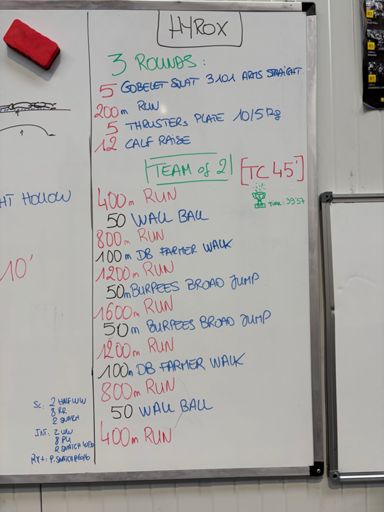 HYROX
3 ROUNDS:
5 GOBELET SQUAT 3101 ARMS STRAIGHT
200m RUN
5 THRUSTERS PLATE 10/5 kg
12 CALF RAISE
TEAM of 2 [TC 45']
TIME: 39'57
400m RUN
50 WALL BALL
800m RUN
100m DB FARMER WALK
1200m RUN
50m BURPEES BROAD JUMP
1600m RUN
50m BURPEES BROAD JUMP
1200m RUN
100m DB FARMER WALK
800m RUN
50 WALL BALL
400m RUN
HT HOLLOW
10'
Sc: 2
8 RR
INT:
8 PU